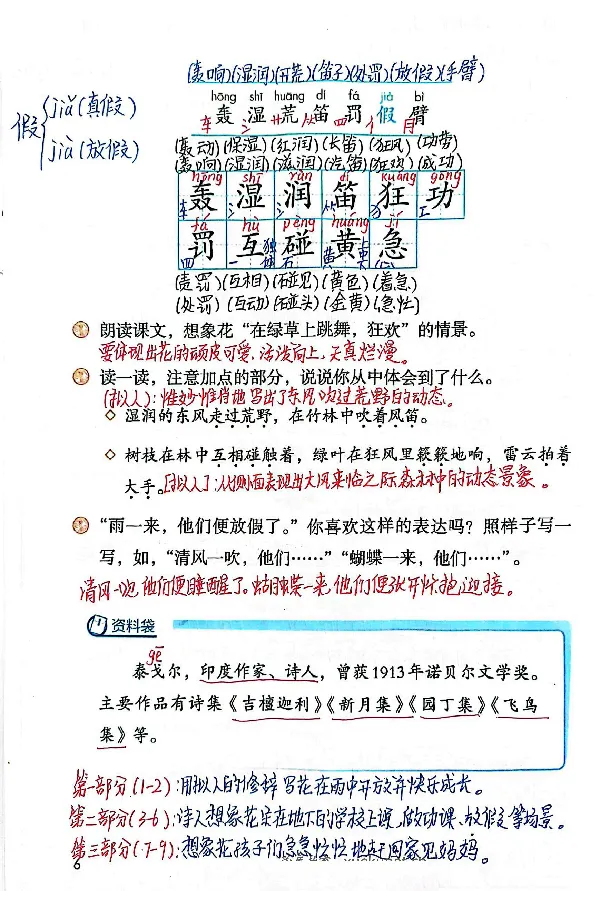 (轰响)(湿润)(开荒)(笛子)(处罚)(放假)(手臂)
hōng shī huāng dí fá jià bì
轰 湿 荒 笛 罚 假 臂
车 氵 艹 ⺮ 四 亻 月
假 jiǎ(真假)
jià(放假)
(轰动)(保湿)(红润)(长笛)(狂风)(功劳)
(轰响)(湿润)(滋润)(汽笛)(狂欢)(成功)
hōng shī rùn dí kuáng gōng
轰 湿 润 笛 狂 功
fá hù pèng huáng jí
罚 互 碰 黄 急
(责罚)(互相)(碰见)(黄色)(着急)
(处罚)(互动)(碰头)(金黄)(急忙)
朗读课文，想象花“在绿草上跳舞，狂欢”的情景。
要体现出花的顽皮可爱、活泼向上、天真烂漫。
读一读，注意加点的部分，说说你从中体会到了什么。
(拟人)：惟妙惟肖地写出了东风吹过荒野的动态。
◇ 湿润的东风走过荒野，在竹林中吹着风笛。
◇ 树枝在林中互相碰触着，绿叶在狂风里簌簌地响，雷云拍着
大手。[拟人]：从侧面表现出大风来临之际森林中的动态景象。
“雨一来，他们便放假了。”你喜欢这样的表达吗？照样子写一
写，如，“清风一吹，他们……”“蝴蝶一来，他们……”。
清风一吹，他们便睡醒了。蝴蝶一来，他们便张开怀抱迎接。
资料袋
gē
泰戈尔，印度作家、诗人，曾获1913年诺贝尔文学奖。
主要作品有诗集《吉檀迦利》《新月集》《园丁集》《飞鸟
集》等。
第一部分(1-2)：用拟人的修辞写花在雨中开放并快乐成长。
第二部分(3-6)：诗人想象花朵在地下的学校上课、做功课、放假等场景。
第三部分(7-9)：想象花孩子们急急忙忙地赶回家见妈妈。
6